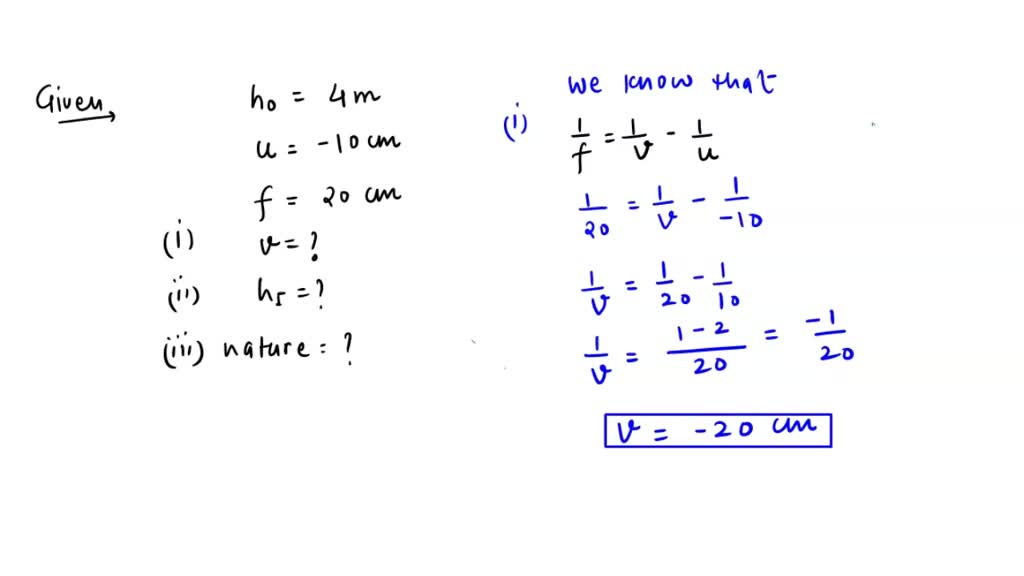 Given
h₀ = 4m
u = -10 cm
f = 20 cm
(i) v = ?
(ii) h₅ = ?
(iii) nature = ?
we know that
(i) 1/f = 1/v - 1/u
1/20 = 1/v - 1/-10
1/v = 1/20 - 1/10
1/v = 1-2/20 = -1/20
v = -20 cm